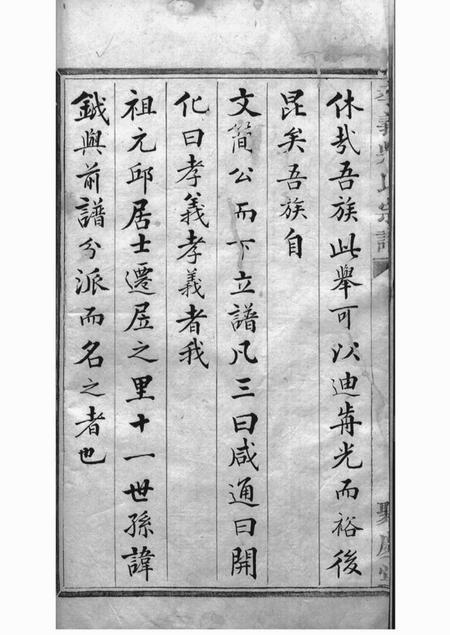 休㢤吾族此舉可以迪前光而裕後
昆矣吾族自
文簡公而下立譜凡三曰咸通曰開
化曰孝義孝義者我
祖元邱居士遷居之里十一世孫諱
鉞與前譜分派而名之者也